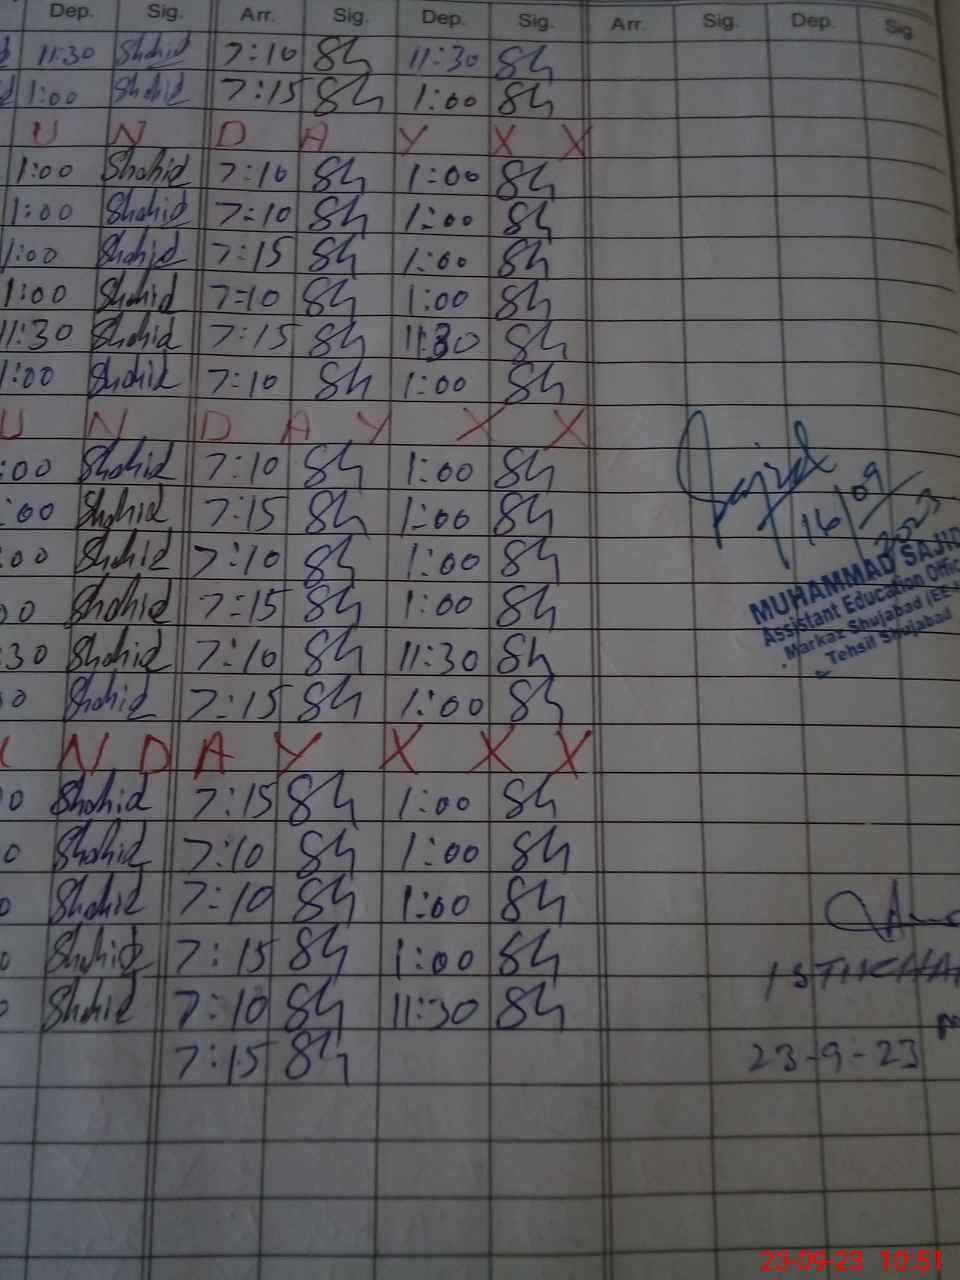 Dep. Sig. Arr. Sig. Dep. Sig. Arr. Sig. Dep. Sig.
11:30 Shahid 7:10 Sh 11:30 Sh
1:00 Shahid 7:15 Sh 1:00 Sh
U N D A Y X X
1:00 Shahid 7:10 Sh 1:00 Sh
1:00 Shahid 7:10 Sh 1:00 Sh
1:00 Shahid 7:15 Sh 1:00 Sh
1:00 Shahid 7:10 Sh 1:00 Sh
11:30 Shahid 7:15 Sh 11:30 Sh
1:00 Shahid 7:10 Sh 1:00 Sh
U N D A Y X X
:00 Shahid 7:10 Sh 1:00 Sh
:00 Shahid 7:15 Sh 1:00 Sh
:00 Shahid 7:10 Sh 1:00 Sh
00 Shahid 7:15 Sh 1:00 Sh
:30 Shahid 7:10 Sh 11:30 Sh
0 Shahid 7:15 Sh 1:00 Sh
N D A Y X X X
0 Shahid 7:15 Sh 1:00 Sh
0 Shahid 7:10 Sh 1:00 Sh
0 Shahid 7:10 Sh 1:00 Sh
0 Shahid 7:15 Sh 1:00 Sh
0 Shahid 7:10 Sh 11:30 Sh
7:15 Sh
Sajid
16/09/2023
MUHAMMAD SAJID
Assistant Education Offic
Markaz Shujabad (EE-
Tehsil Shujabad
23-9-23
23-09-23 10:51